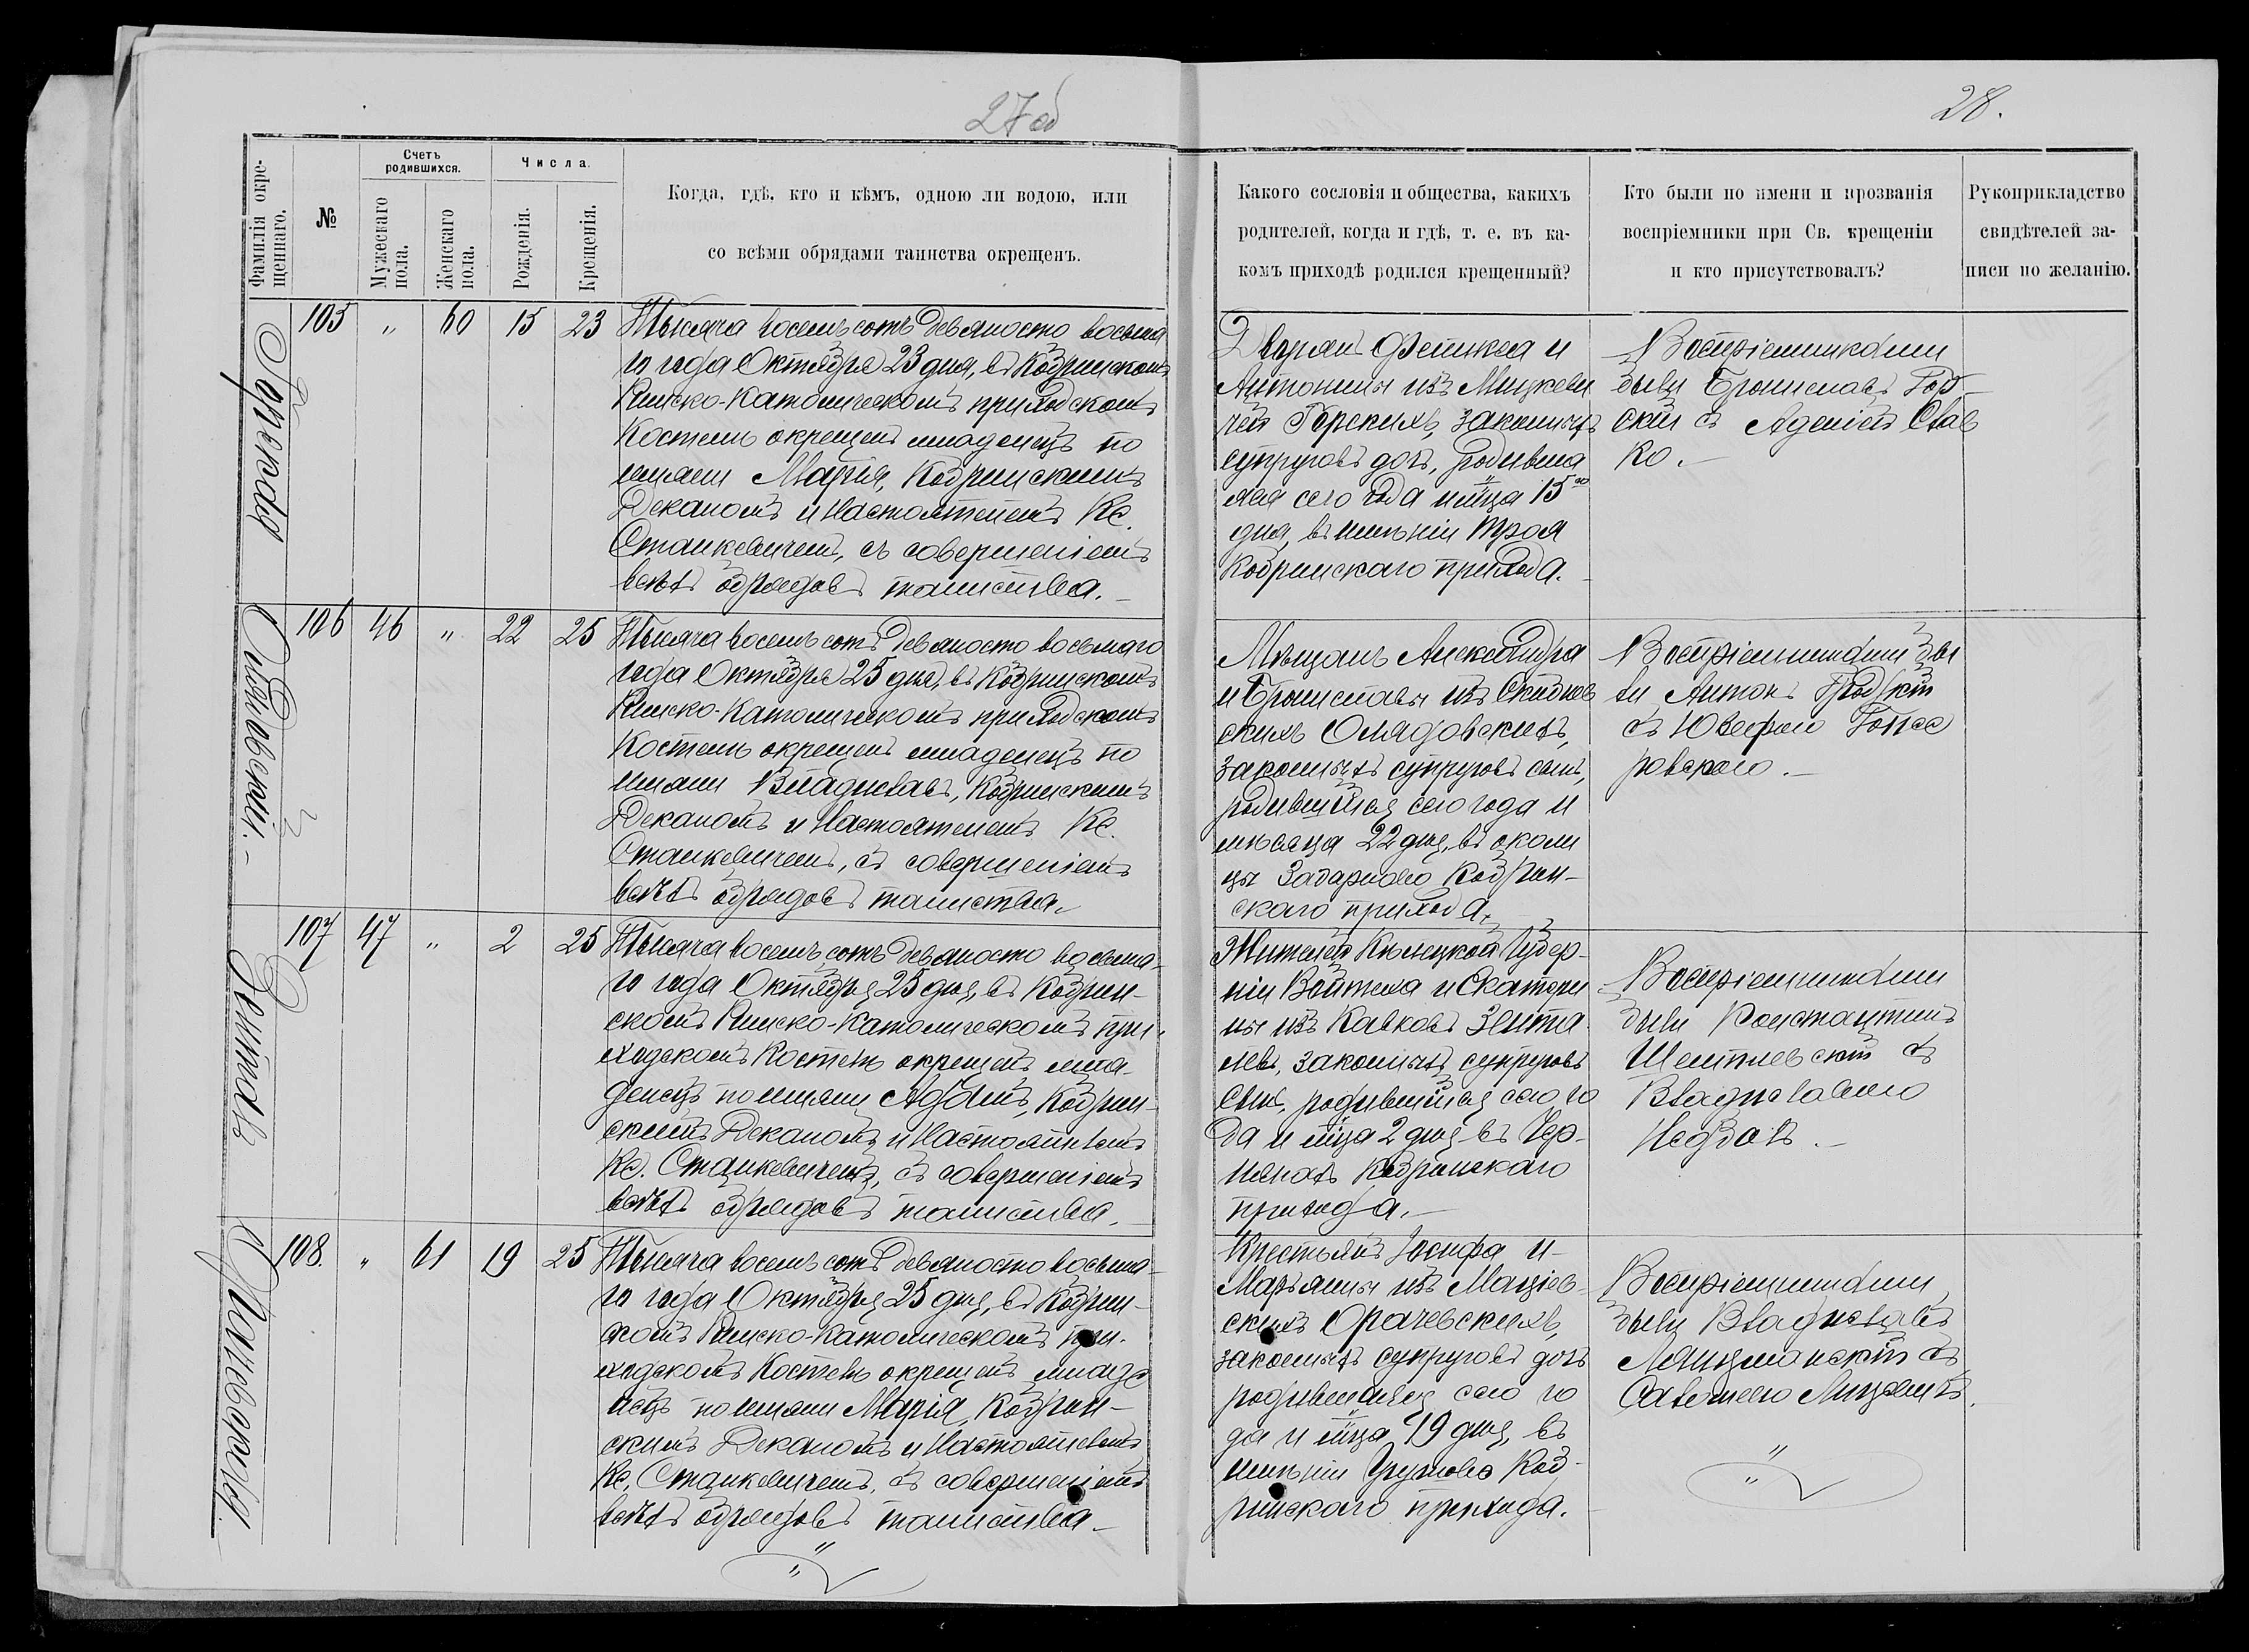 27 об
28.
Фамилія окре-
щеннаго.
№
Счетъ
родившихся.
Мужескаго
пола.
Женскаго
пола.
Числа.
Рожденія.
Крещенія.
Когда, гдѣ, кто и кѣмъ, одною ли водою, или
со всѣми обрядами таинства окрещенъ.
Какого сословія и общества, какихъ
родителей, когда и гдѣ, т. е. въ ка-
комъ приходѣ родился крещенный?
Кто были по имени и прозванія
воспріемники при Св. крещеніи
и кто присутствовалъ?
Рукоприкладство
свидѣтелей за-
писи по желанію.
105 " 60 15 23
Тысяча восемьсотъ девяносто восьма
го года Октября 23 дня, въ Кобринскомъ
Римско-Католическомъ приходскомъ
Костелѣ окрещенъ младенецъ по
имени Марія, Кобринскимъ
Деканомъ и Настоятелемъ Кс.
Станкевичемъ, съ совершеніемъ
всѣхъ обрядовъ таинства.
Дворянъ Феликса и
Антонины изъ Мицкеви
чей Горскихъ, законныхъ
супруговъ дочь, родивша
яся сего года и мѣсяца 15го
дня, въ имѣніи
Кобринскаго прихода.
Воспріемниками
были Брониславъ Гор
скій съ
ко.
Олядовскій.
106 46 " 22 25
Тысяча восемьсотъ девяносто восьмаго
года Октября 25 дня, въ Кобринскомъ
Римско-Католическомъ приходскомъ
Костелѣ окрещенъ младенецъ по
имени Владиславъ, Кобринскимъ
Деканомъ и Настоятелемъ Кс.
Станкевичемъ, съ совершеніемъ
всѣхъ обрядовъ таинства.
Мѣщанъ Александра
и Брониславы изъ
скихъ Олядовскихъ,
законныхъ супруговъ сынъ,
родившійся сего года и
мѣсяца 22 дня, въ околи
цы Кобрин-
скаго прихода.
Воспріемниками бы
ли Антонъ
съ Юзефою
107 47 " 2 25
Тысяча восемьсотъ девяносто восьма-
го года Октября 25 дня, въ Кобрин-
скомъ Римско-Католическомъ при-
ходскомъ Костелѣ окрещенъ мла-
денецъ по имени Адамъ, Кобрин-
скимъ Деканомъ и Настоятелемъ
Кс. Станкевичемъ, съ совершеніемъ
всѣхъ обрядовъ таинства.
Жителей Кѣлецкой Губер-
ніи Войтеха и Екатери
ны изъ Кавковъ
законныхъ супруговъ
сынъ, родившійся сего го
да и мѣсяца 2 дня въ
Кобринскаго
прихода.
Воспріемниками
были Константинъ
съ
Владиславою
Орачевская
108. " 61 19 25
Тысяча восемьсотъ девяносто восьма-
го года Октября 25 дня, въ Кобрин-
скомъ Римско-Католическомъ при-
ходскомъ Костелѣ окрещенъ младе
нецъ по имени Марія, Кобрин-
скимъ Деканомъ и Настоятелемъ
Кс. Станкевичемъ, съ совершеніемъ
всѣхъ обрядовъ таинства
Крестьянъ Іосифа и
Марьянны изъ Маціев-
скихъ Орачевскихъ,
законныхъ супруговъ дочь
родившаяся сего го
да и мѣсяца 19 дня, въ
имѣніи Коб-
ринскаго прихода.
Воспріемниками
были Владиславъ
съ